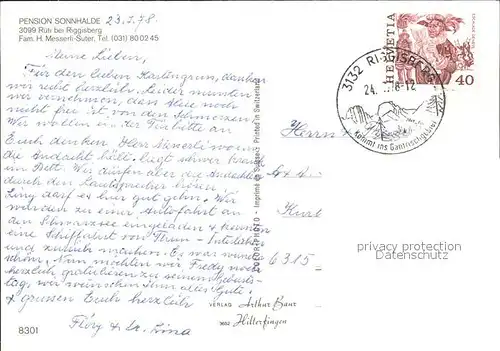 PENSION SONNHALDE 23.7.78.
3099 Rüti bei Riggisberg
Fam. H. Messerli-Suter, Tel. (031) 80 02 45
Meine Lieben,
Für den lieben Kartengruss, danken
wir recht herzlich. Leider mussten
wir vernehmen, dass Alice noch
nicht frei ist von den Schmerzen.
Wir wollen in der Fürbitte an
Euch denken. Herr Messerli wo
die Andacht hält, liegt schwer krank
im Bett. Wir dürfen aber die Andachten
durch den Lautsprecher hören.
Lina darf es hier gut gehn. Wir
wurden zu einer Autofahrt an
den Schwarzsee eingeladen & konnten
eine Schiffahrt von Thun - Interlaken
und zurück machen. Es war wunder-
schön. Nun möchten wir Fredy noch
herzlich gratulieren zu seinem Geburts-
tag, wir wünschen ihm alles Gute.
& grüssen Euch herzlich
Flöry & Lina
8301
COLOR-PHOTO - Imprimé en Suisse - Printed in Switzerland
VERLAG Arthur Baur
3652 Hilterfingen
HELVETIA
40
3132 RIGGISBERG
24. 78-12
Kommt ins Gantrischgebiet
Herrn
Kurt
6315
privacy protection
Datenschutz